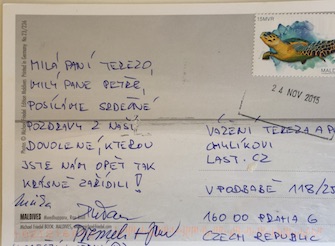 MILÁ PANÍ TEREZO,
MILÝ PANE PETŘE,
POSÍLÁME SRDEČNÉ
POZDRAVY Z NAŠÍ
DOVOLENÉ, KTEROU
JSTE NÁM OPĚT TAK
KRÁSNĚ ZAŘÍDILI!
15MVR
24 NOV 2015
VÁŽENÍ TEREZA A P
CHLÍKOVI
LAST.CZ
V PODBABĚ 118/25
160 00 PRAHA 6
CZECH REPUBLIC
MALDIVES